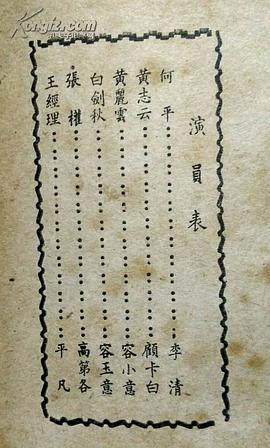 演員表
何平………………李清
黃志云………………顧卡白
黃麗雲………………容小意
白劍秋………………容玉意
張權………………高第各
王經理………………平凡